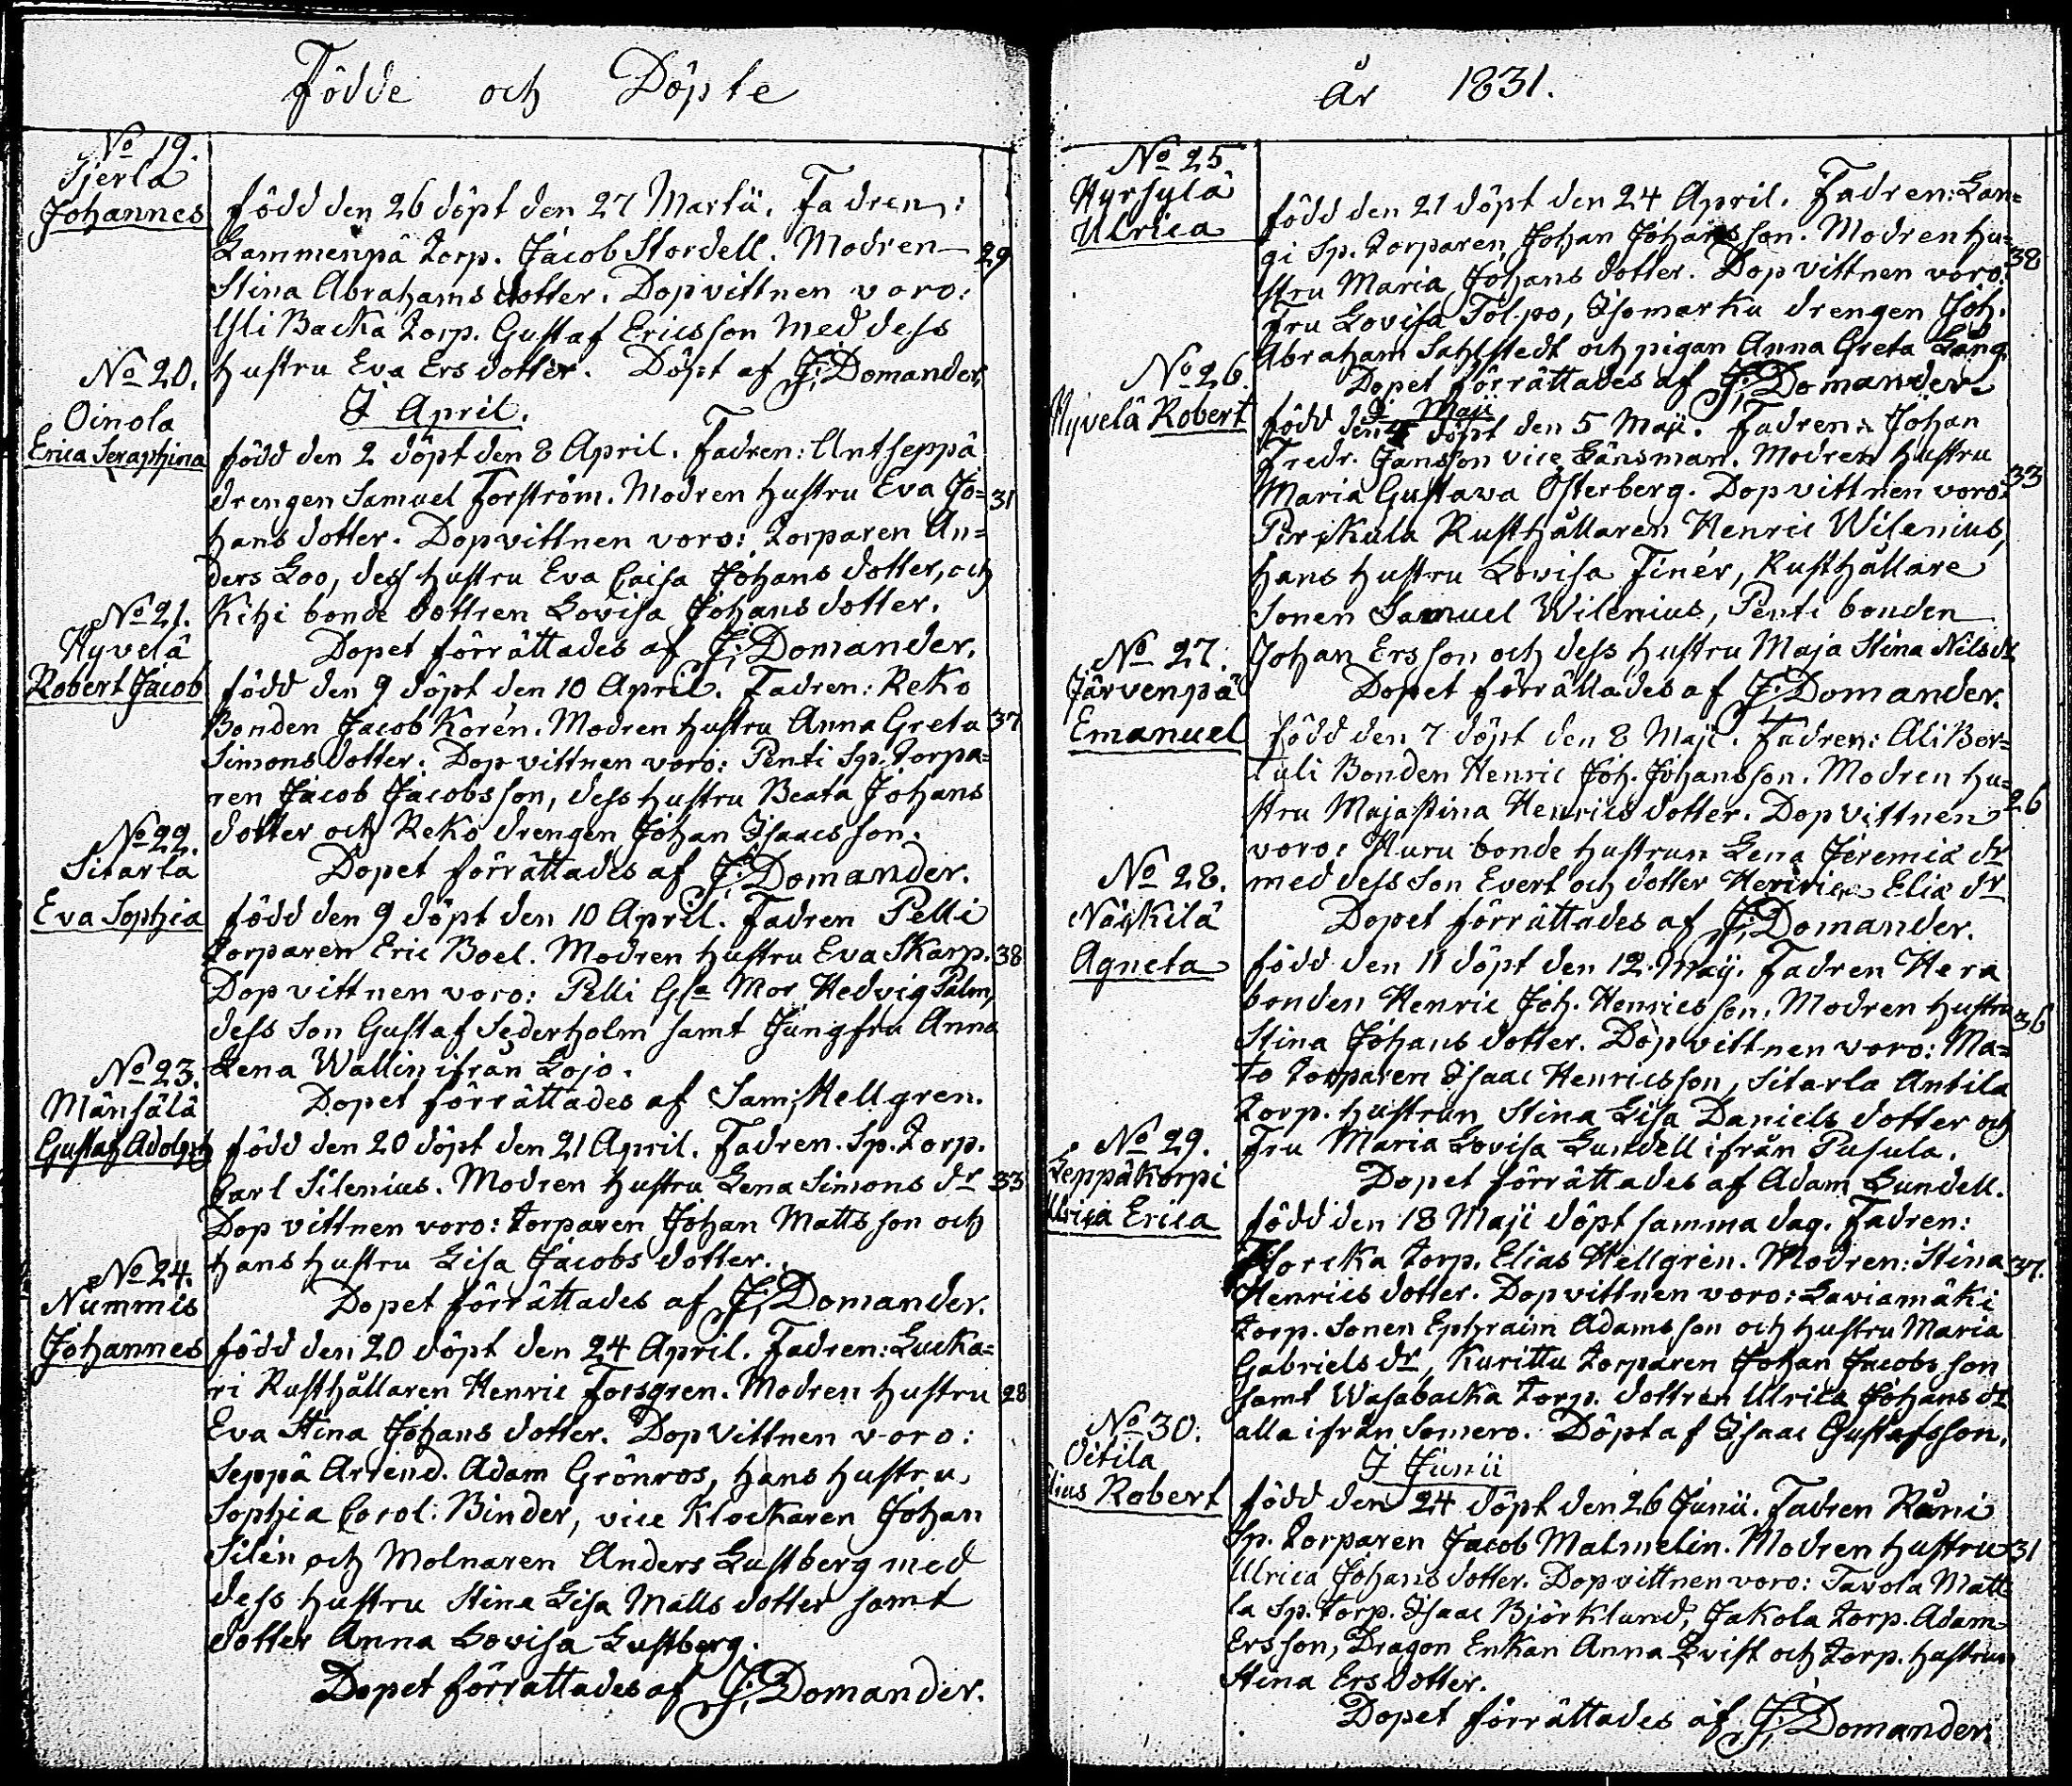 Födde och Döpte
No 19.
Tjerla
Johannes
född den 26 döpt den 27 Martii. Fadren:
Lammenpä Torp. Jacob Stordell. Modren
29
Stina Abrahams dotter. Dopvittnen voro:
Uli Backa Torp. Gustaf Ericsson med dess
Hustru Eva Ersdotter. Döpt af J. Domander,
I April.
No 20.
Oinola
Erica Seraphina
född den 2 döpt den 8 April. Fadren: Antseppä
drengen Samuel Forström. Modren Hustru Eva Jo=
31
hans dotter. Dopvittnen voro: Torparen An=
ders Loo, dess Hustru Eva Caisa Johans dotter, och
Kihi bonde dottren Lovisa Johansdotter.
Dopet förrättades af J. Domander.
No 21.
Hyvelä
Robert Jacob
född den 9 döpt den 10 April. Fadren: Reko
Bonden Jacob Korén. Modren Hustru Anna Greta
37
Simonsdotter. Dopvittnen voro: Penti Sp. Torpa=
ren Jacob Jacobsson, dess Hustru Beata Johans
dotter och Reko drengen Johan Isaacsson.
Dopet förrättades af J. Domander.
No 22.
Sitarla
Eva Sophia
född den 9 döpt den 10 April. Fadren Pelli
Torparen Eric Boel. Modren Hustru Eva Skarp.
38
Dopvittnen voro: Pelli Gla Mor Hedvig Palm,
dess Son Gustaf Sederholm samt Jungfru Anna
Lena Wallin ifrån Lojo.
Dopet förrättades af Sam. Hellgren.
No 23.
Mänsälä
Gustaf Adolph
född den 20 döpt den 21 April. Fadren. Sp. Torp.
Carl Silenius. Modren Hustru Lena Simons dr
33
Dop vittnen voro: Torparen Johan Mattsson och
Hans Hustru Lisa Jacobs dotter.
Dopet förrättades af J. Domander.
No 24.
Nummis
Johannes
född den 20 döpt den 24 April. Fadren: Lucka=
ri Rusthållaren Henric Forsgren. Modren Hustru
28
Eva Stina Johans dotter. Dop vittnen voro:
Seppä Arrend. Adam Grönros, Hans Hustru
Sophia Carol. Binder, vice Klockaren Johan
Silén och Molnaren Anders Lustberg med
dess Hustru Stina Lisa Matts dotter samt
dotter Anna Lovisa Lustberg.
Dopet förrättades af J. Domander.
År 1831.
No 25
Hyrsylä
Ulrica
född den 21 döpt den 24 April. Fadren: Lan=
gi Sp. Torparen Johan Johansson. Modren Hu=
38
stru Maria Johans dotter. Dop vittnen voro:
Fru Lovisa Tolpo, Isomarku drengen Joh.
Abraham Sahlstedt och pigan Anna Greta Lång
Dopet förrättades af J. Domander
I Maji
No 26.
Hyvelä Robert
född den 4 döpt den 5 Maji. Fadren: Johan
Fredr. Jansson vice Länsman. Modren Hustru
33
Maria Gustava Österberg. Dop vittnen voro:
Pirskula Rusthållaren Henric Wilenius,
Hans Hustru Lovisa Finér, Rusthållare
Sonen Samuel Wilenius, Penti bonden
Johan Ersson och dess Hustru Maja Stina Nils dr
Dopet förrättades af J. Domander.
No 27.
Järvenpä
Emanuel
född den 7 döpt den 8 Maji. Fadren: Ali Ber=
tuli Bonden Henric Joh. Johansson. Modren Hu=
26
stru Majastina Henrics dotter. Dop vittnen
voro: Huru bonde Hustrun Lena Jeremiæ dr
med dess Son Evert och dotter Henrica Eliæ dr
Dopet förrättades af J. Domander.
No 28.
Näkkilä
Agneta
född den 11 döpt den 12 Maji. Fadren Hera
bonden Henric Joh. Henricsson. Modren Hustru
36
Stina Johans dotter. Dop vittnen voro: Ma=
to Torparen Isaac Henricsson, Sitarla Antila
Torp. Hustrun Stina Lisa Daniels dotter och
Fru Maria Lovisa Lundell ifrån Pusula.
Dopet förrättades af Adam Lundell.
No 29.
Leppäkorpi
Ulrica Erica
född den 18 Maji döpt samma dag. Fadren:
Torcka Torp. Elias Hellgrén. Modren: Stina
37.
Henrics dotter. Dop vittnen voro: Laviamäki
Torp. Sonen Ephraim Adamsson och Hustru Maria
Gabriels dr, Kurittu Torparen Johan Jacobsson
samt Wasabacka Torp. dottren Ulrica Johans dr
alla ifrån Somero. Döpt af Isaac Gustafsson.
I Junii
No 30.
Oitila
lius Robert
född den 24 döpt den 26 Junii. Fadren Räni
Sp. Torparen Jacob Malmelin. Modren Hustru
31
Ulrica Johansdotter. Dop vittnen voro: Tavola Matti
la Sp. Torp. Isaac Björklund, Jakola Torp. Adam
Ersson, Dragon Enkan Anna Qvist och Torp. Hustrun
Stina Ersdotter.
Dopet förrättades af J. Domander.